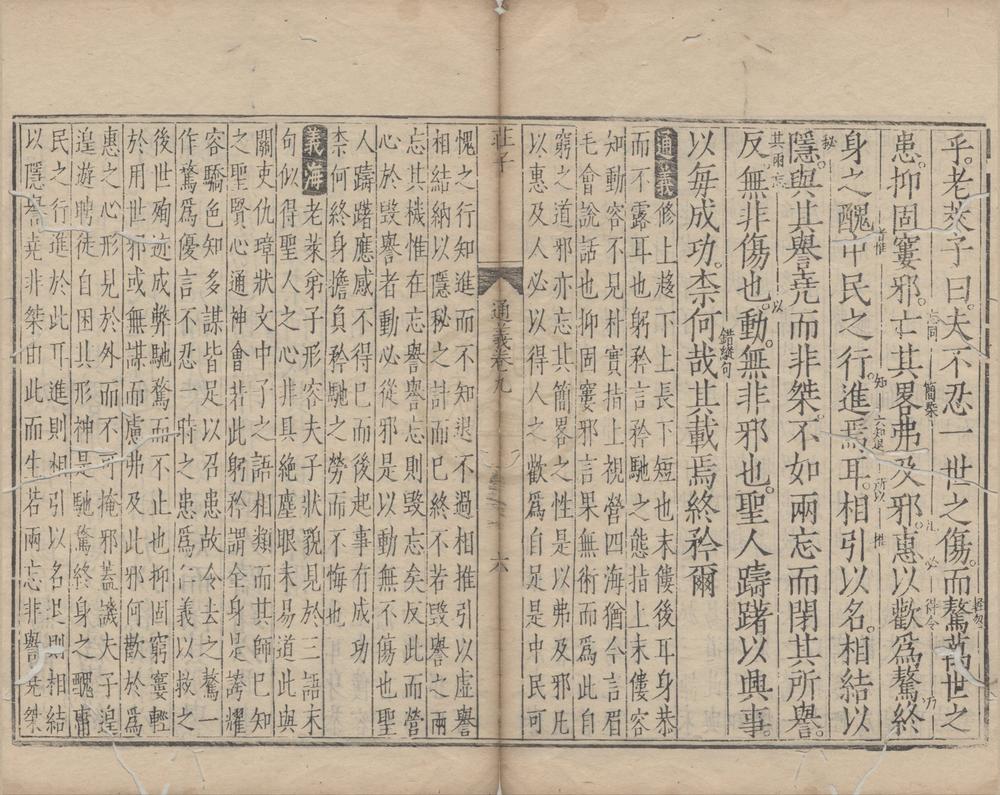 乎。老萊子曰。夫不忍一世之傷。而驁萬世之
患。抑固窶邪。亡其畧弗及邪。惠以歡爲驁終
身之醜中民之行。進焉耳。相引以名。相結以
隱。與其譽堯而非桀。不如兩忘而閉其所譽。
反無非傷也。動無非邪也。聖人躊躇以興事。
以每成功。柰何哉其載焉終矜爾
通義修上趍下上長下短也末僂後耳身恭
而不露耳也躬矜言矜馳之態指上末僂容
知動容不見朴實指上視營四海猶今言眉
毛會說話也抑固窶邪言果無術而爲此自
窮之道邪亦忘其簡畧之性是以弗及邪凡
以惠及人必以得人之歡爲自足是中民可
莊子
通義卷九
六
愧之行知進而不知退不過相推引以虛譽
相結納以隱秘之計而已終不若毀譽之兩
忘其機惟在忘譽譽忘則毀忘矣反此而營
心於毀譽者動必從邪是以動無不傷也聖
人躊躇應感不得已而後起事事有成功
柰何終身擔負矜馳之勞而不悔也
義海老萊弟子形容夫子狀貌見於三語末
句似得聖人之心非具絕塵眼未易道此與
關吏仇璋狀文中子之語相類而其師已知
之聖賢心通神會若此躬矜謂全身是誇耀
容驕色知多謀皆足以召患故令去之驁一
作驚爲優言不忍一時之患爲仁義以救之
後世殉迹成弊馳騖而不止也抑固窮窶輕
於用世邪或無謀而慮弗及此邪何歡於爲
惠之心形見於外而不可掩邪蓋譏夫子遑
遑遊聘徒自困其形神是馳騖終身之醜庸
民之行進於此耳進則相引以名退則相結
以隱譽堯非桀由此而生若兩忘非譽堯桀